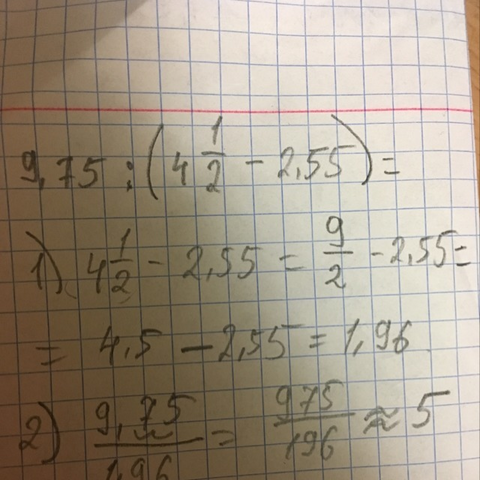 9,75 : (4 1/2 - 2,55) =
1) 4 1/2 - 2,55 = 9/2 - 2,55 =
= 4,5 - 2,55 = 1,96
2) 9,75/1,96 = 975/196 ≈ 5